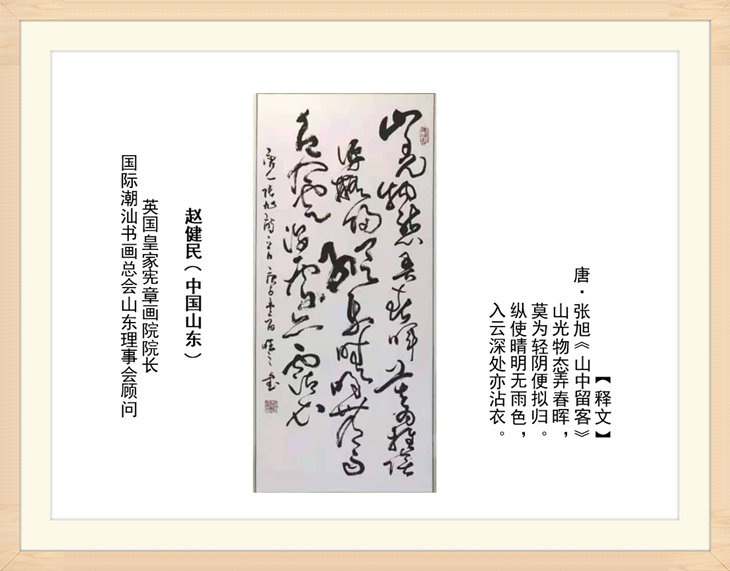 【释文】
唐·张旭《山中留客》
山光物态弄春晖，
莫为轻阴便拟归。
纵使晴明无雨色，
入云深处亦沾衣。
山光物态弄春晖莫为轻阴
便拟归纵使晴明无雨
色入云深处亦沾衣
赵健民（中国山东）
英国皇家宪章画院院长
国际潮汕书画总会山东理事会顾问